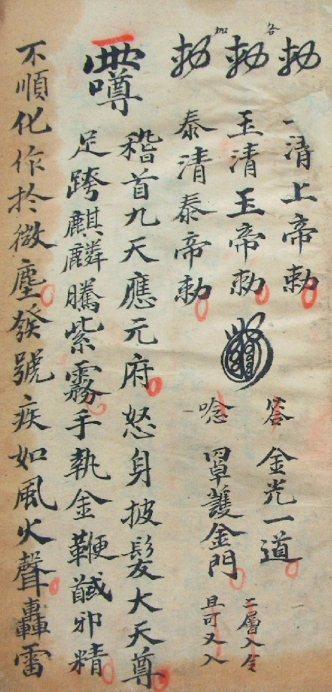 勅 各
勅 加
勅
一清上帝勅
玉清玉帝勅
泰清泰帝勅
答 金光一道 二層入令
唸 罩護金門 且可又入
稽首九天應元府怒身披髮大天尊
足跨麒麟騰紫霧手執金鞭馘邪精
不順化作於微塵發號疾如風火聲轟雷